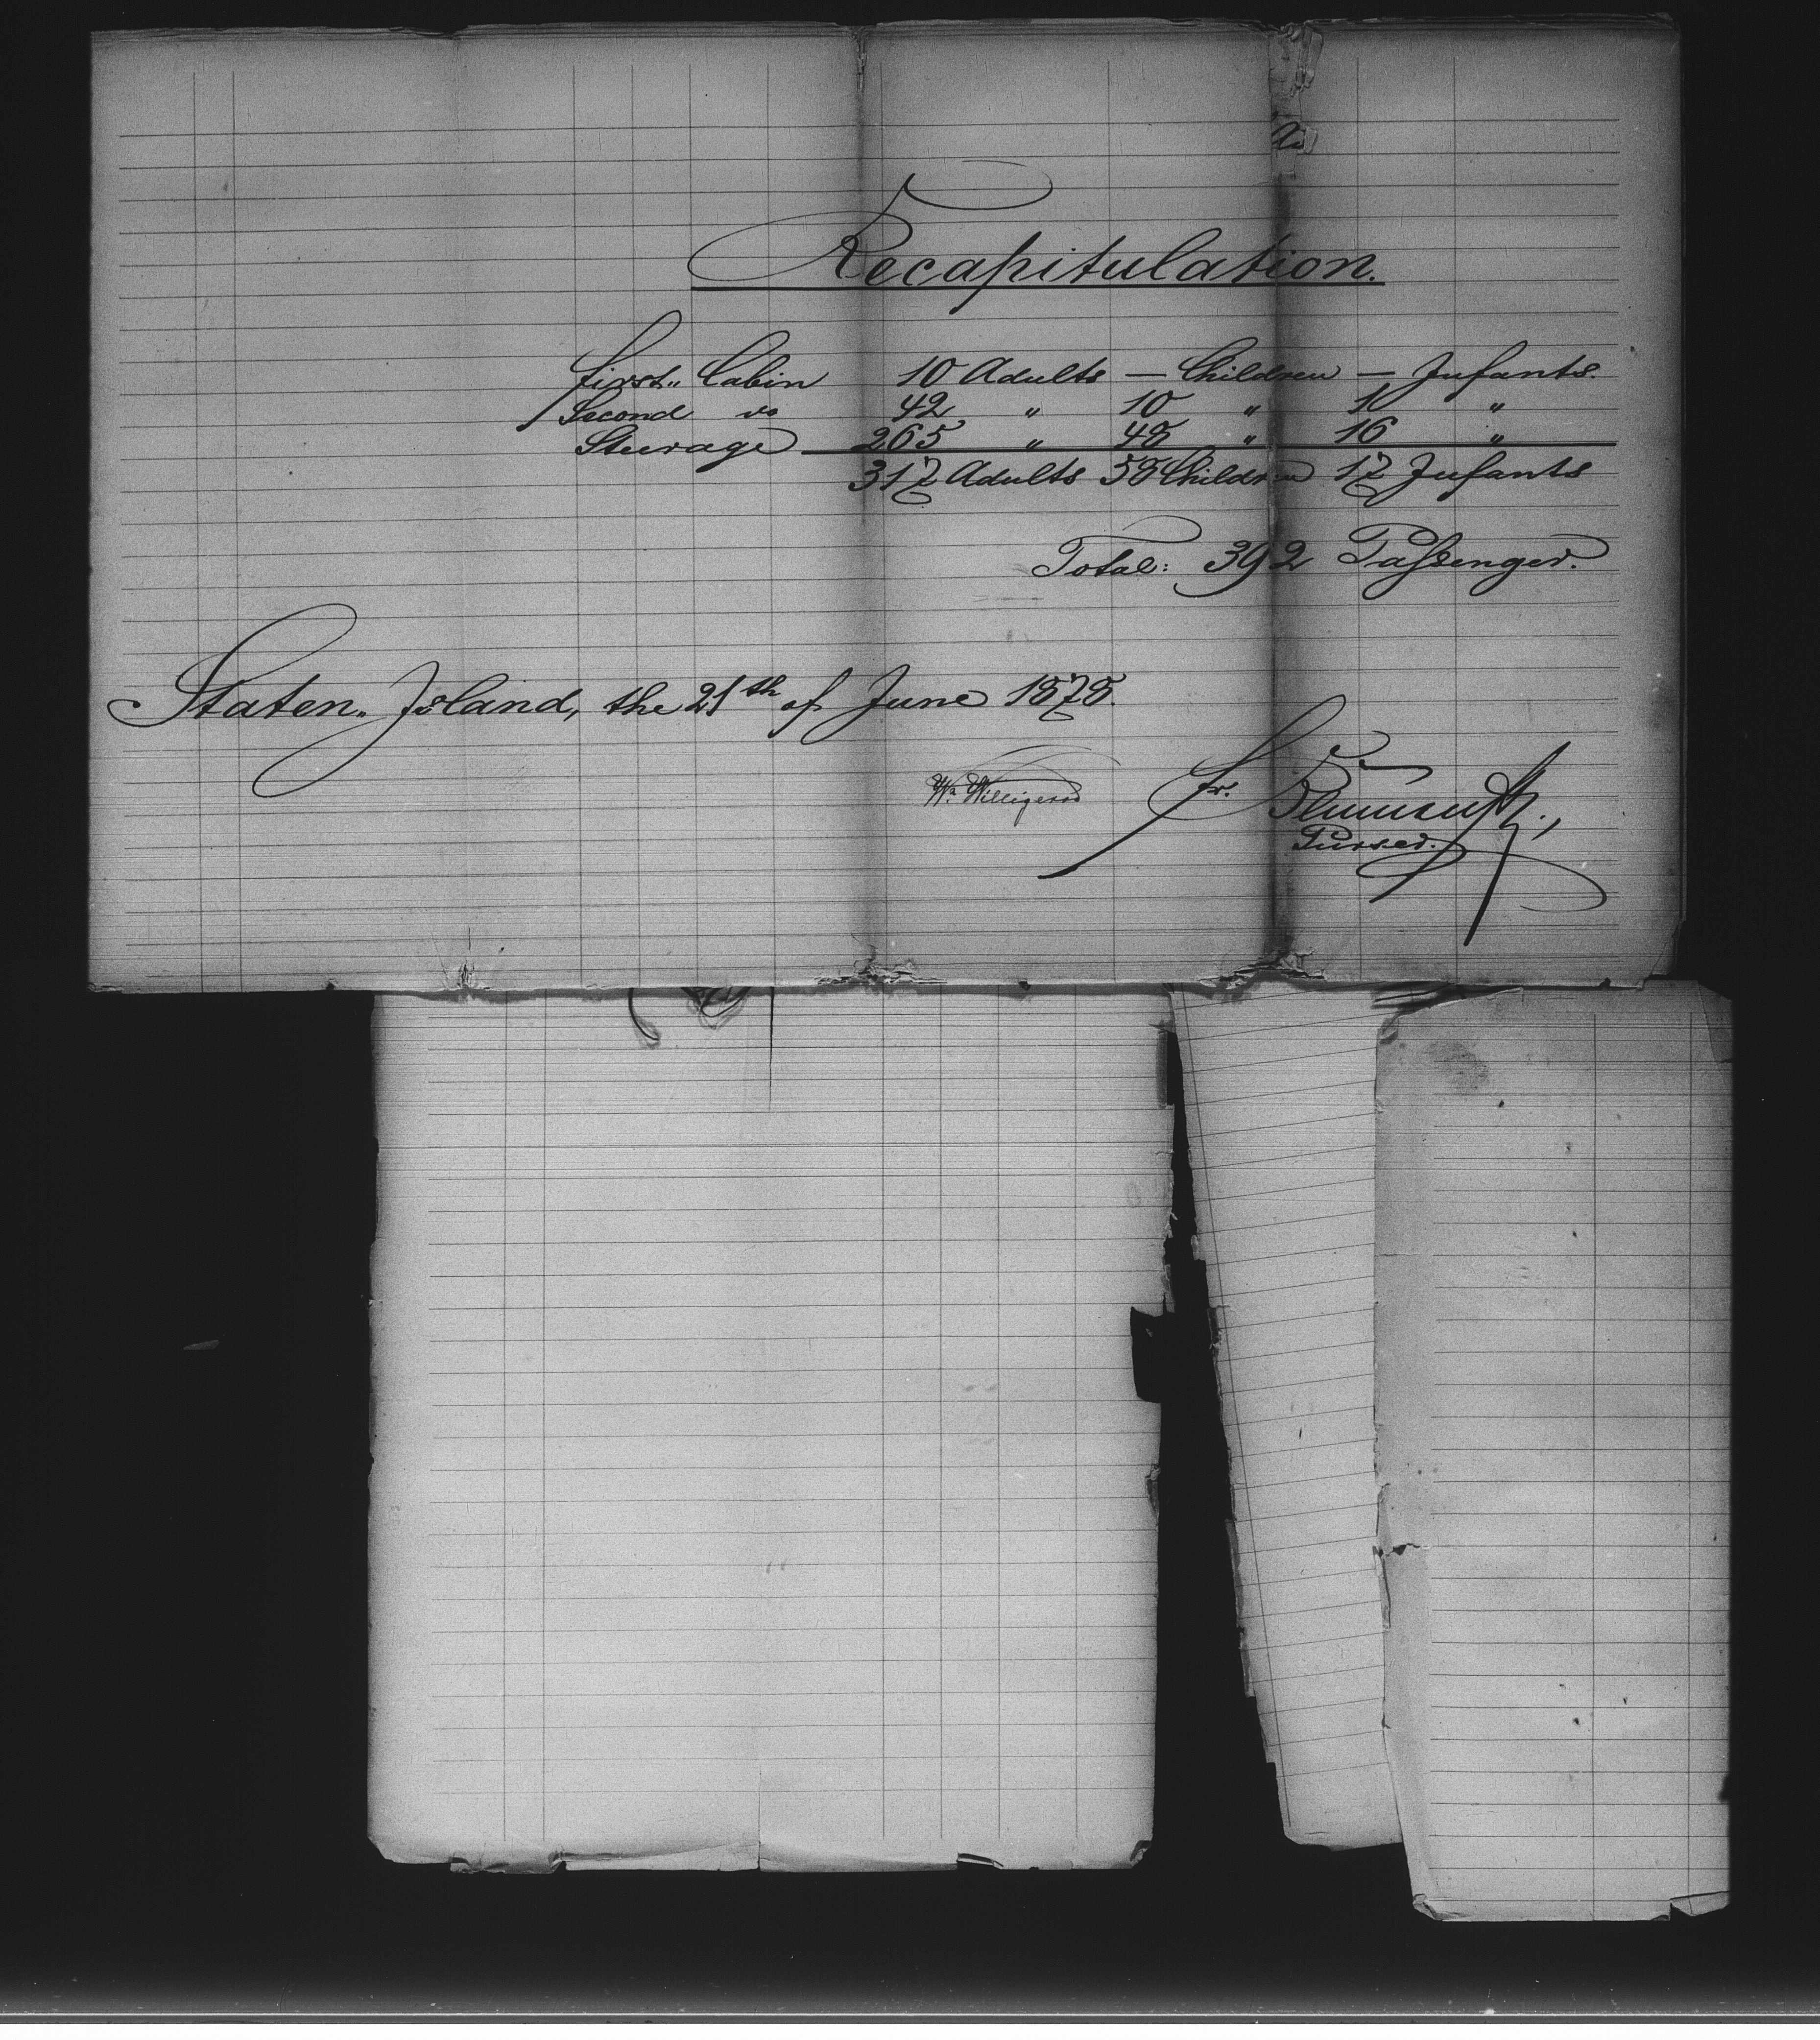 Recapitulation.
First„ Cabin 10 Adults — Children — Infants.
Second do 42 " 10 " 1 "
Steerage 265 " 48 " 16 "
317 Adults 58 Children 17 Infants
Total: 392 Passenger.
Staten„ Island, the 21th of June 1878.
W. Willigerod
Fr.
Purser.